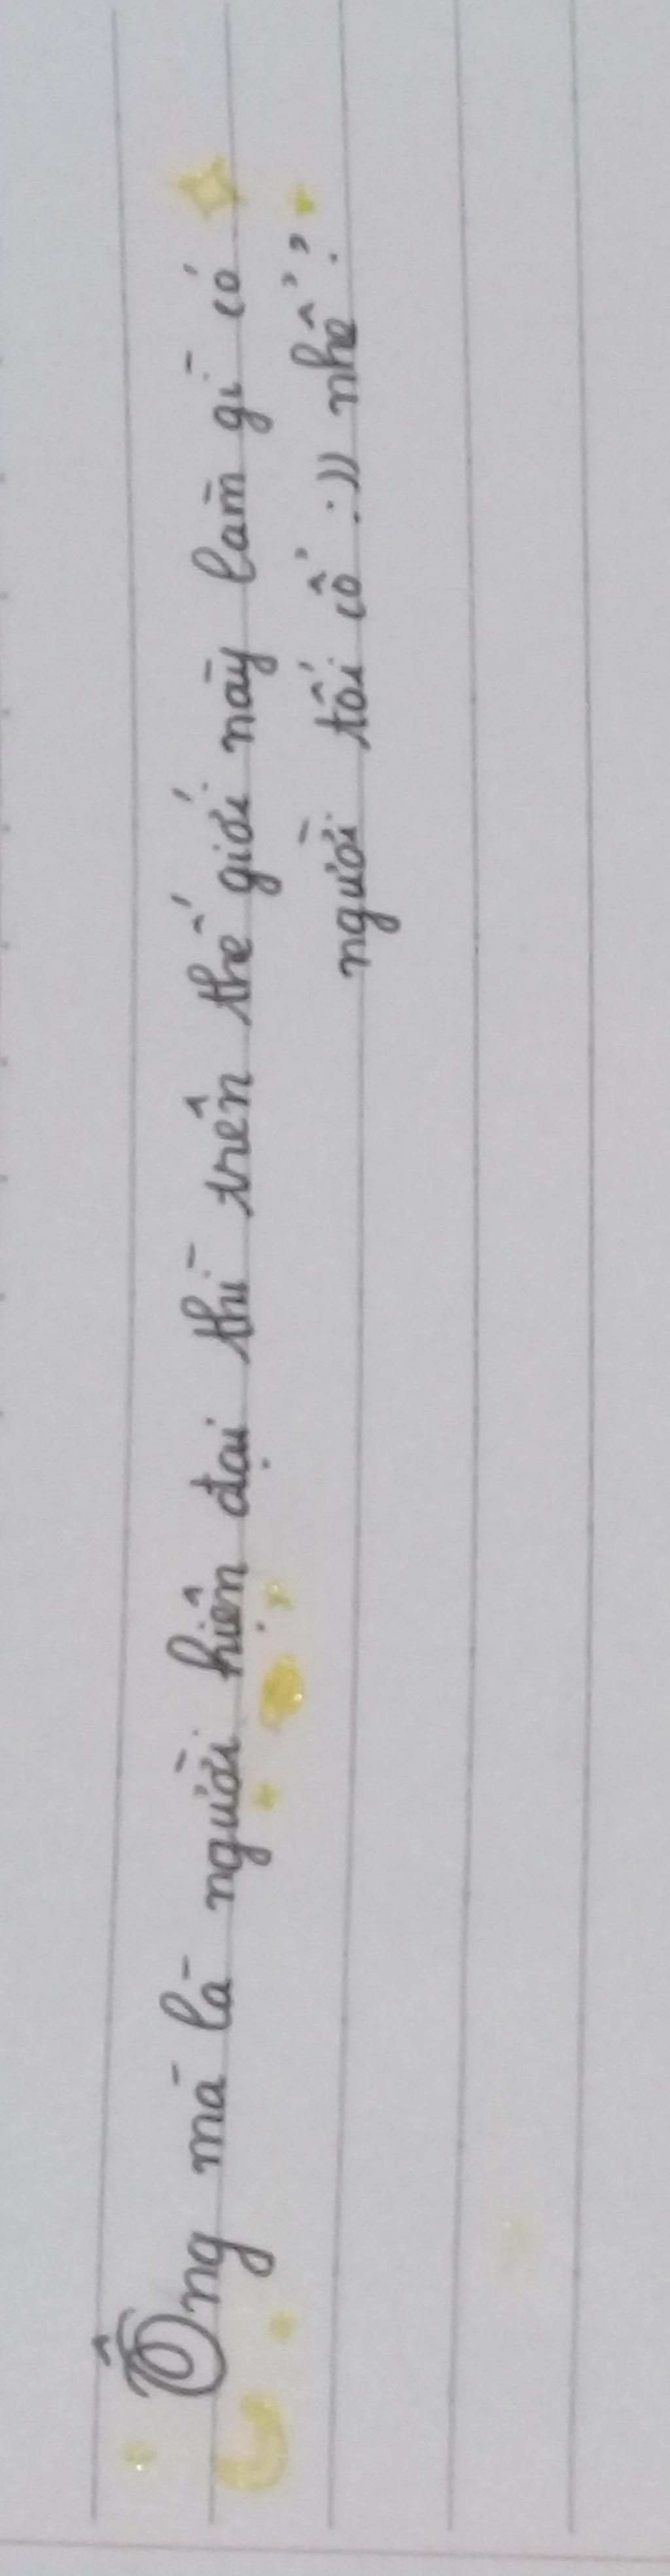 Ông mà là người hiện đại thì trên thế giới này làm gì có
người tối cổ :)) nhể?